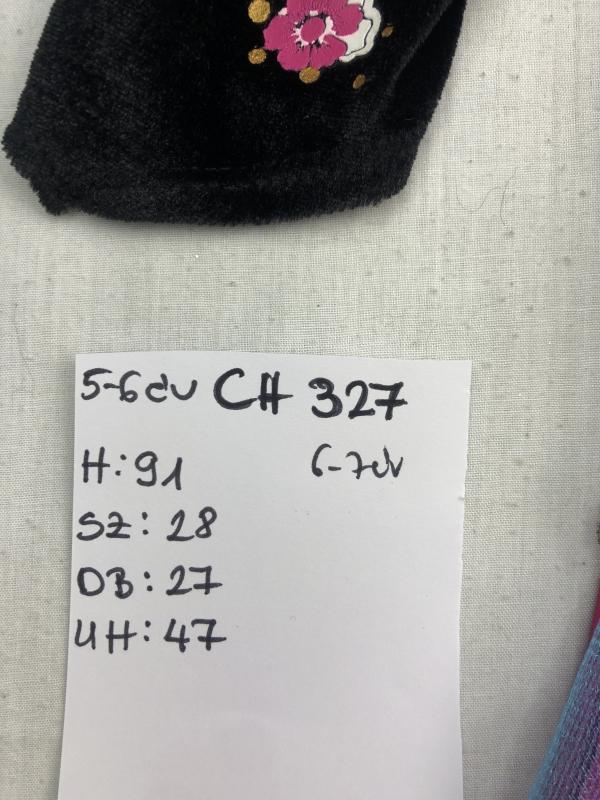 5-6év CH 327
H: 91 6-7év
SZ: 28
DB: 27
UH: 47